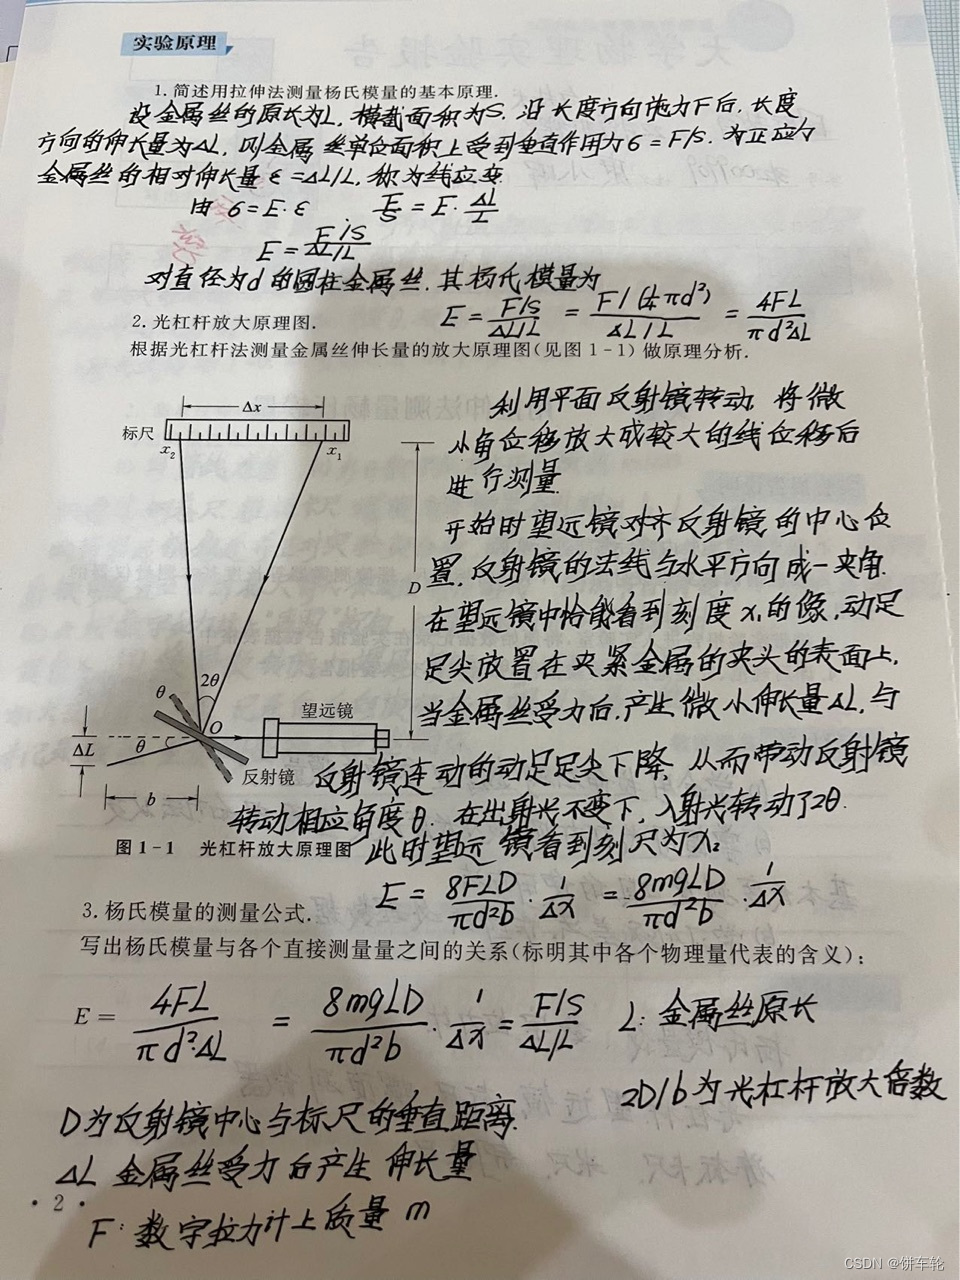 实验原理
1.简述用拉伸法测量杨氏模量的基本原理.
设金属丝的原长为L,横截面积为S,沿长度方向施力F后,长度
方向的伸长量为ΔL,则金属丝单位面积上受到垂直作用为σ=F/S.为正应力
金属丝的相对伸长量ε=ΔL/L,称为线应变.
由σ=E·ε F/S=E·ΔL/L
E=(F/S)/(ΔL/L)
对直径为d的圆柱金属丝.其杨氏模量为
E=(F/S)/(ΔL/L)=(F/(¼πd²))/(ΔL/L)=4FL/(πd²ΔL)
2.光杠杆放大原理图.
根据光杠杆法测量金属丝伸长量的放大原理图(见图1-1)做原理分析.
Δx
标尺
x₂
x₁
D
θ
2θ
O
望远镜
ΔL
θ
反射镜
b
图1-1 光杠杆放大原理图
利用平面反射镜转动,将微
小角位移放大成较大的线位移后
进行测量.
开始时望远镜对齐反射镜的中心位
置,反射镜的法线与水平方向成一夹角.
在望远镜中恰能看到刻度x₁的像,动足
足尖放置在夹紧金属的夹头的表面上,
当金属丝受力后,产生微小伸长量ΔL,与
反射镜连动的动足足尖下降,从而带动反射镜
转动相应角度θ.在出射光不变下,入射光转动了2θ.
此时望远镜看到刻尺为x₂
E=8FLD/(πd²b)·1/Δx=8mgLD/(πd²b)·1/Δx
3.杨氏模量的测量公式.
写出杨氏模量与各个直接测量量之间的关系(标明其中各个物理量代表的含义):
E=4FL/(πd²·ΔL)=8mgLD/(πd²b)·1/Δx=(F/S)/(ΔL/L) L:金属丝原长
2D/b为光杠杆放大倍数
D为反射镜中心与标尺的垂直距离.
ΔL 金属丝受力后产生伸长量
·2·
F:数字拉力计上质量 m
CSDN @饼车轮